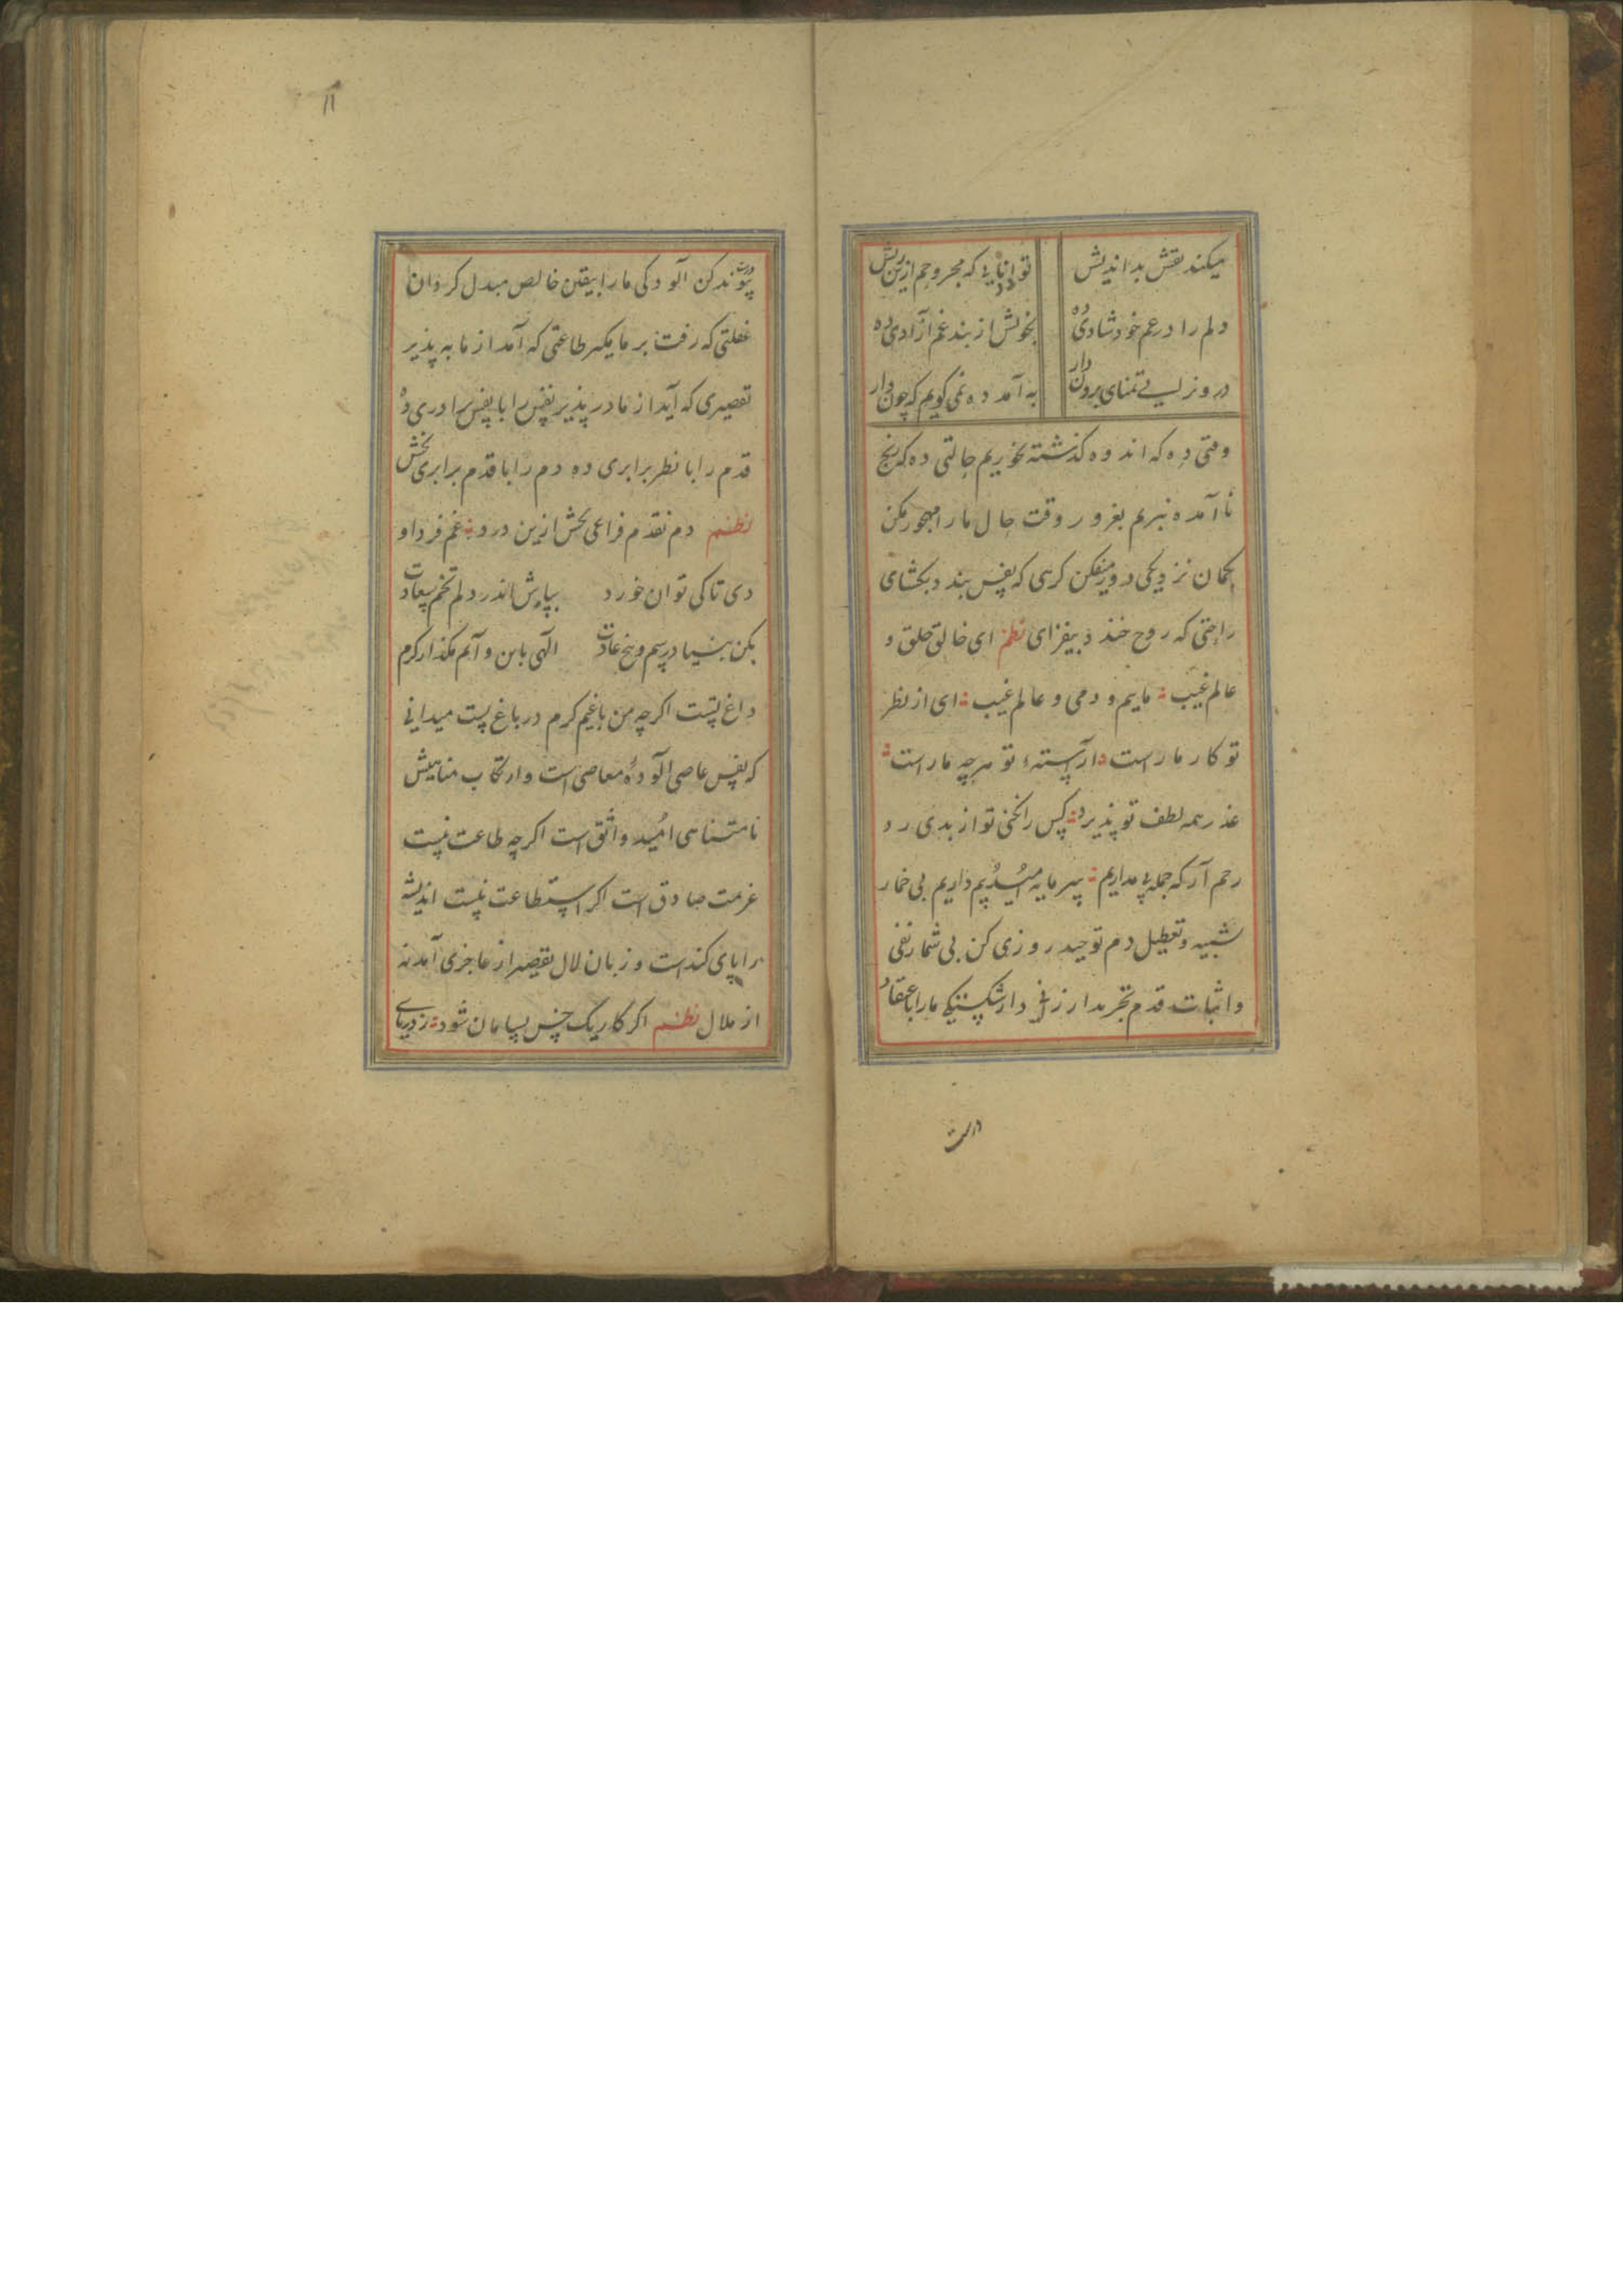 میکند نقش بد اندیش تو دانایی که مجروحم ازین ریش
دلم را در غم خود شادی ده بخویش از بند غم آزادی ده
درونم لیے تمنای برون دار به آمد ده نمی کویم که چون دار
وقتی ده که اندوه کذشته نخوریم حالتی ده که رنج
نا آمده نبریم بغرور وقت حال ما را مهجور مکن
بکمان نزدیکی دور مفکن کرهی که نفس بندد بکشای
راحتی که روح خندد بیفزای نظم ای خالق خلق و
عالم غیب مایم و دمی و عالم غیب ای از نظر
تو کار ما راست آراسته تو هرچه ما راست
عذر همه لطف تو پذیرد کس را نکنی تو از بدی رد
رحم آر که جمله نداریم سرمایه امید داریم بی خمار
تشبیه و تعطیل دم توحید روزی کن بی شمار نفی
و اثبات قدم تجرید ارزانی دار شکستیکی ما را با اعتقاد
درست
۱۱
درست پیوند کن آلودکی ما را بیقین خالص مبدل کردان
غفلتی که رفت بر ما مکیر طاعتی که آمد از ما به پذیر
تقصیری که آید از ما در پذیر نفس را با نفس برادری ده
قدم را با نظر برابری ده دم را با قدم برابری بخش
نظم دم نقدم فراغی بخش ازین درد غم فردا و
دی تا کی توان خورد بپاش اندر دلم تخم سعادت
بکن بنیاد رسم و بیخ عادت الهی باین و آنم مکذار کرم
داغ تست اکرچه من باغیم کرم در باغ تست میدانی
که نفس عاصی آلوده معاصی است و ارتکاب مناهیش
نامتناهی امید واثق است اکرچه طاعت نیست
عزیمت صادق است اکر استطاعت نیست اندیشه
را پای کند است و زبان لال تقصیر از عاجزی آمد نه
از ملال نظم اکر کار یک خس بسامان شود ز دریای